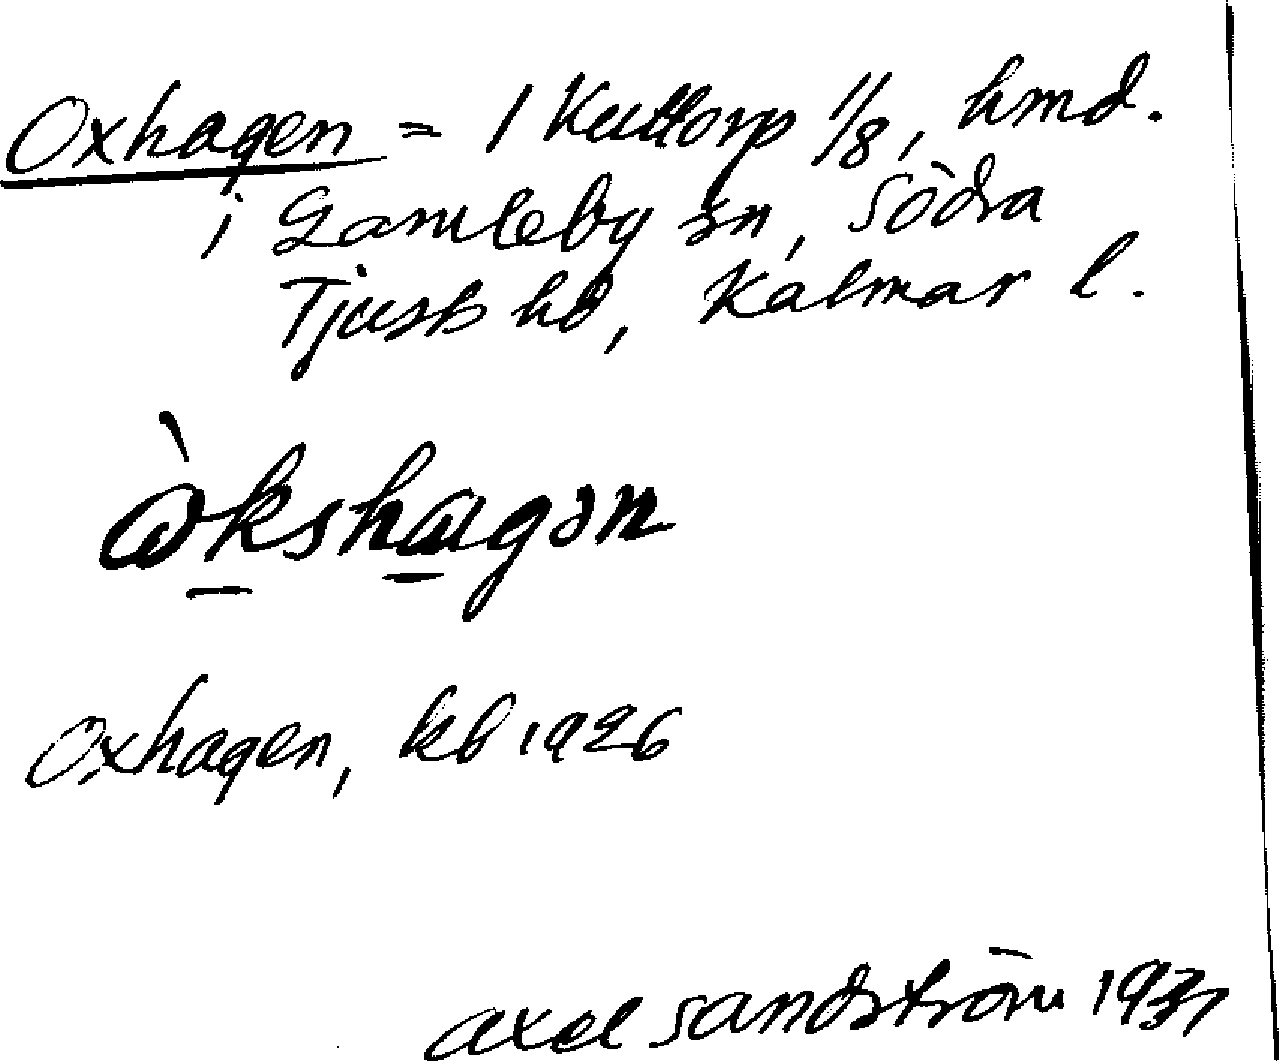 Oxhagen = 1 Kuttorp 1/8, hmd.
i Gamleby sn, Södra
Tjusts hd, Kalmar l.
ò̱kshα̱gən
Oxhagen, kb 1926
Axel Sandström 1931